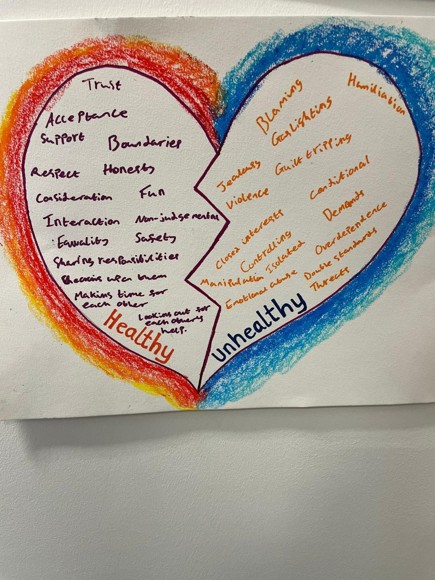 Trust
Acceptance
Support
Boundaries
Respect
Honesty
Consideration
Fun
Interaction
Non-judgemental
Equality
Safety
Sharing responsibilities
them
Making time for
each other
Looking out for
each others
help.
Healthy
Humiliation
Blaming
Gaslighting
Guilt tripping
Jealousy
Violence
Conditional
Closed interests
Demands
Controlling
Overdependence
Manipulation
Isolated
Double standards
Emotional abuse
Threats
unhealthy